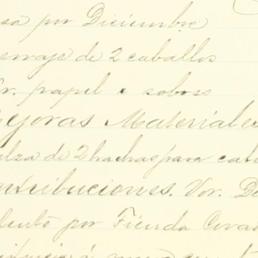 sa por Diciembre
erraje de 2 caballos
or. papel e sobres
ejoras Materiales
alza de 2 hachas para cab
ontribuciones. Vor. De
ento por Tienda Cora